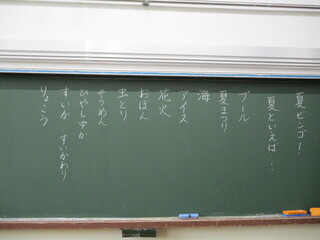 夏ビンゴ！
夏といえば・・・
プール
夏まつり
海
アイス
花火
おぼん
虫とり
そうめん
ひやし中か
すいか すいかわり
りょこう